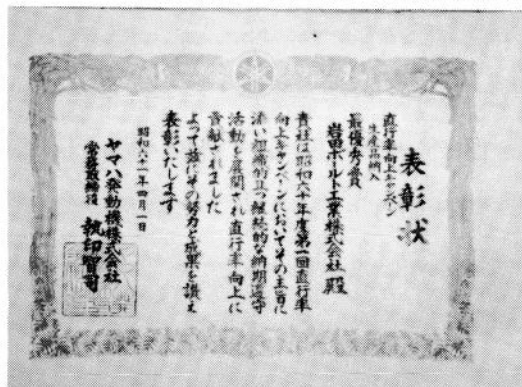 表彰状
直行率向上キャンペーン
生産品納入
最優秀賞
岩田ボルト工業株式会社殿
貴社は昭和六十年度第一回直行率
向上キャンペーンにおいてその主旨に
添い組織的且つ継続的な納期遵守
活動を展開され直行率向上に
貢献されました
よって茲にその努力と成果を讃え
表彰いたします
昭和六十一年四月一日
ヤマハ発動機株式会社
常務取締役 執印智司